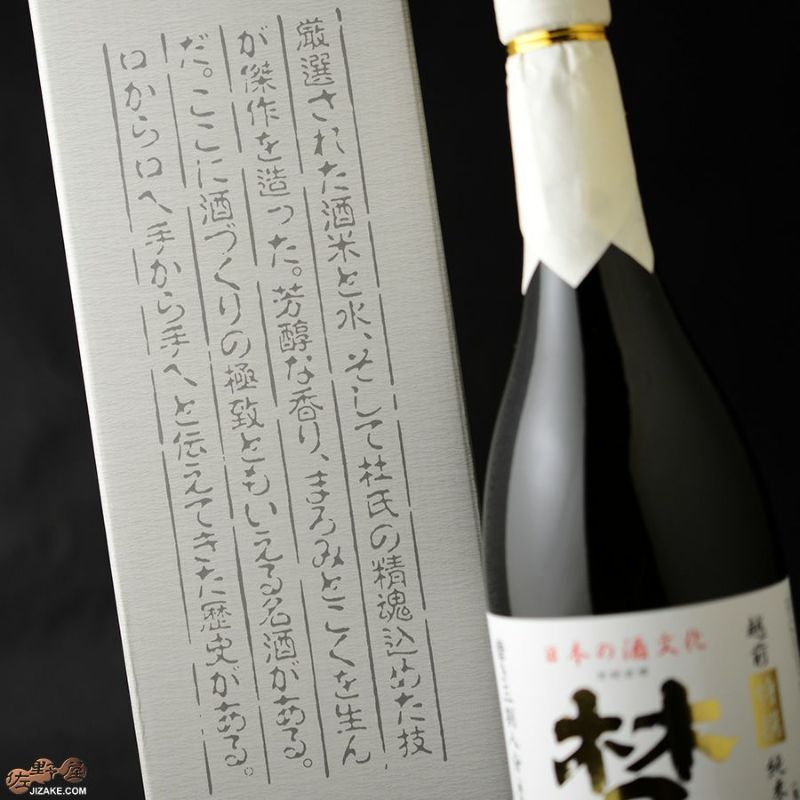 厳選された酒米と水、そして杜氏の精魂込めた技
が傑作を造った。芳醇な香り、まろみとこくを生ん
だ。ここに酒づくりの極致ともいえる名酒がある。
口から口へ手から手へと伝えてきた歴史がある。
日本の酒文化
越前
純米
佐野屋
JIZAKE.COM